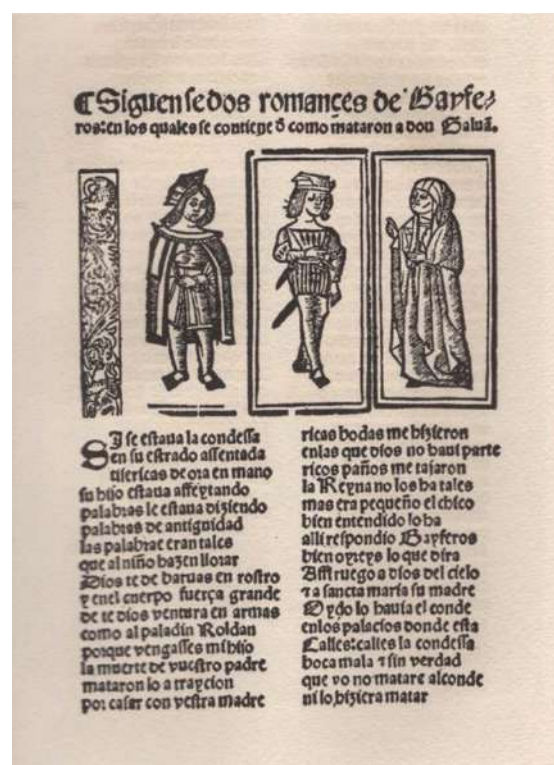 ¶Siguense dos romances de Gayfe⸗
ros: en los quales se contiene d̄ como mataron a don Galuā.
SI se estaua la condessa
en su estrado assentada
tisericas de ora en mano
su hijo estaua affeytando
palabras le estaua diziendo
palabras de antiguidad
las palabrae eran tales
que al niño hazen llorar
Dios te de baruas en rostro
y enel cuerpo fuerça grande
de te dios ventura en armas
como al paladin Roldan
porque vengasses mi hijo
la muerte de vuestro padre
mataron lo a traycion
por casar con vestra madre
ricas bodas me hizieron
enlas que dios no haui parte
ricos paños me tajaron
la Reyna no los ha tales
mas era pequeño el chico
bien entendido lo ha
alli respondio Gayferos
bien oyreys lo que dira
Assi ruego a dios del cielo
⁊ a sancta maria su madre
Oydo lo hauia el conde
enlos palacios donde esta
Calles: calles la condessa
boca mala ⁊ sin verdad
que yo no matare al conde
ni lo hiziera matar